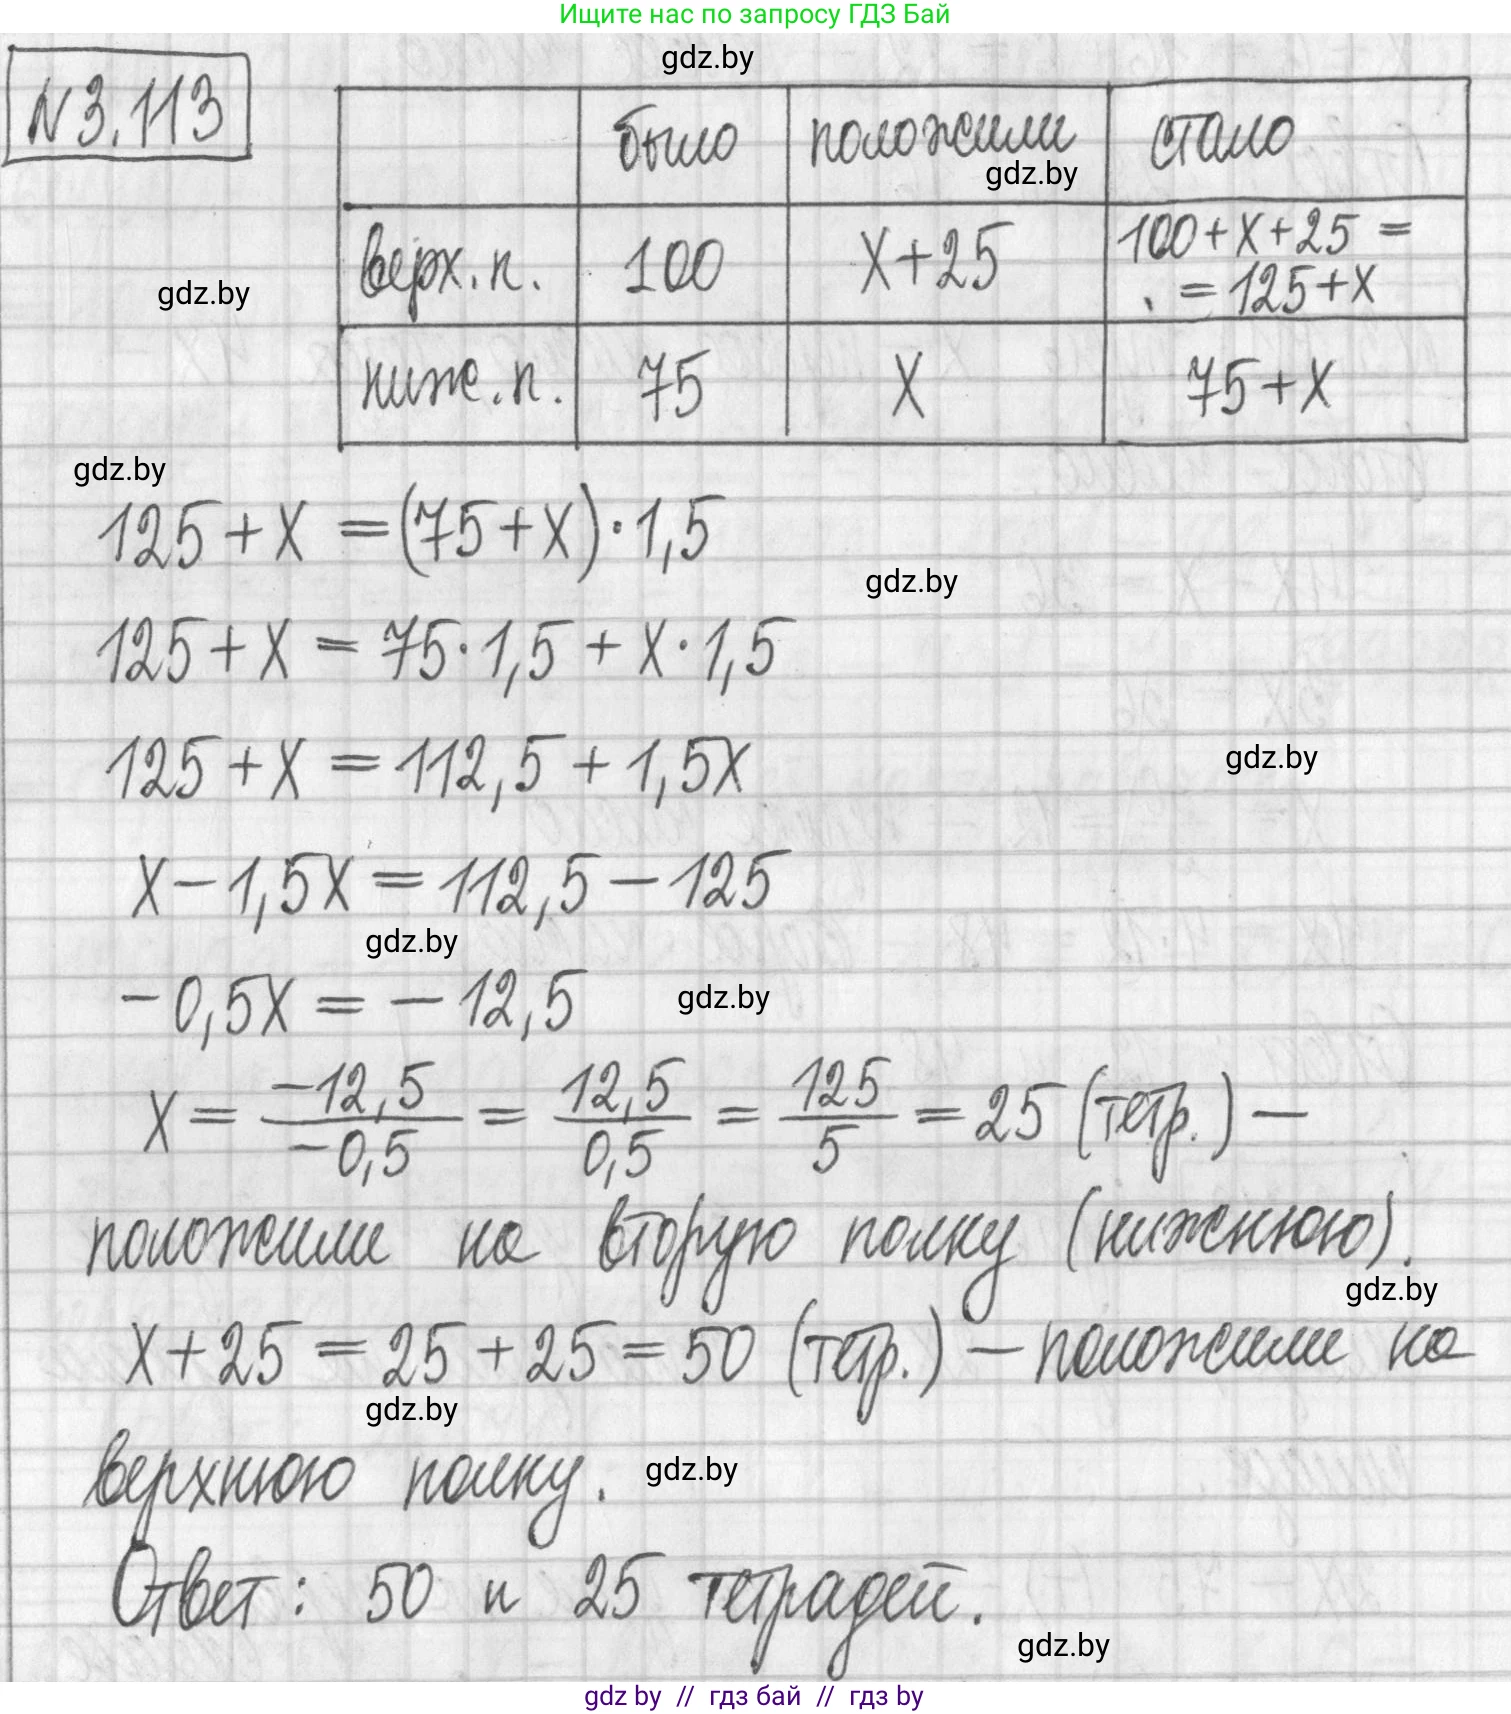 Ищите нас по запросу ГДЗ Бай
gdz.by
N3.113
было положили стало
gdz.by
верх.п. 100 x+25 100+x+25=
=125+x
gdz.by
ниж.п. 75 x 75+x
gdz.by
125+x=(75+x)·1,5
gdz.by
125+x=75·1,5+x·1,5
125+x=112,5+1,5x
gdz.by
x-1,5x=112,5-125
gdz.by
-0,5x=-12,5
gdz.by
x=\frac{-12,5}{-0,5}=\frac{12,5}{0,5}=\frac{125}{5}=25 (тетр.) —
положили на вторую полку (нижнюю).
gdz.by
x+25=25+25=50 (тетр.) — положили на
gdz.by
верхнюю полку.
gdz.by
Ответ: 50 и 25 тетрадей.
gdz.by
gdz by // гдз бай // гдз by